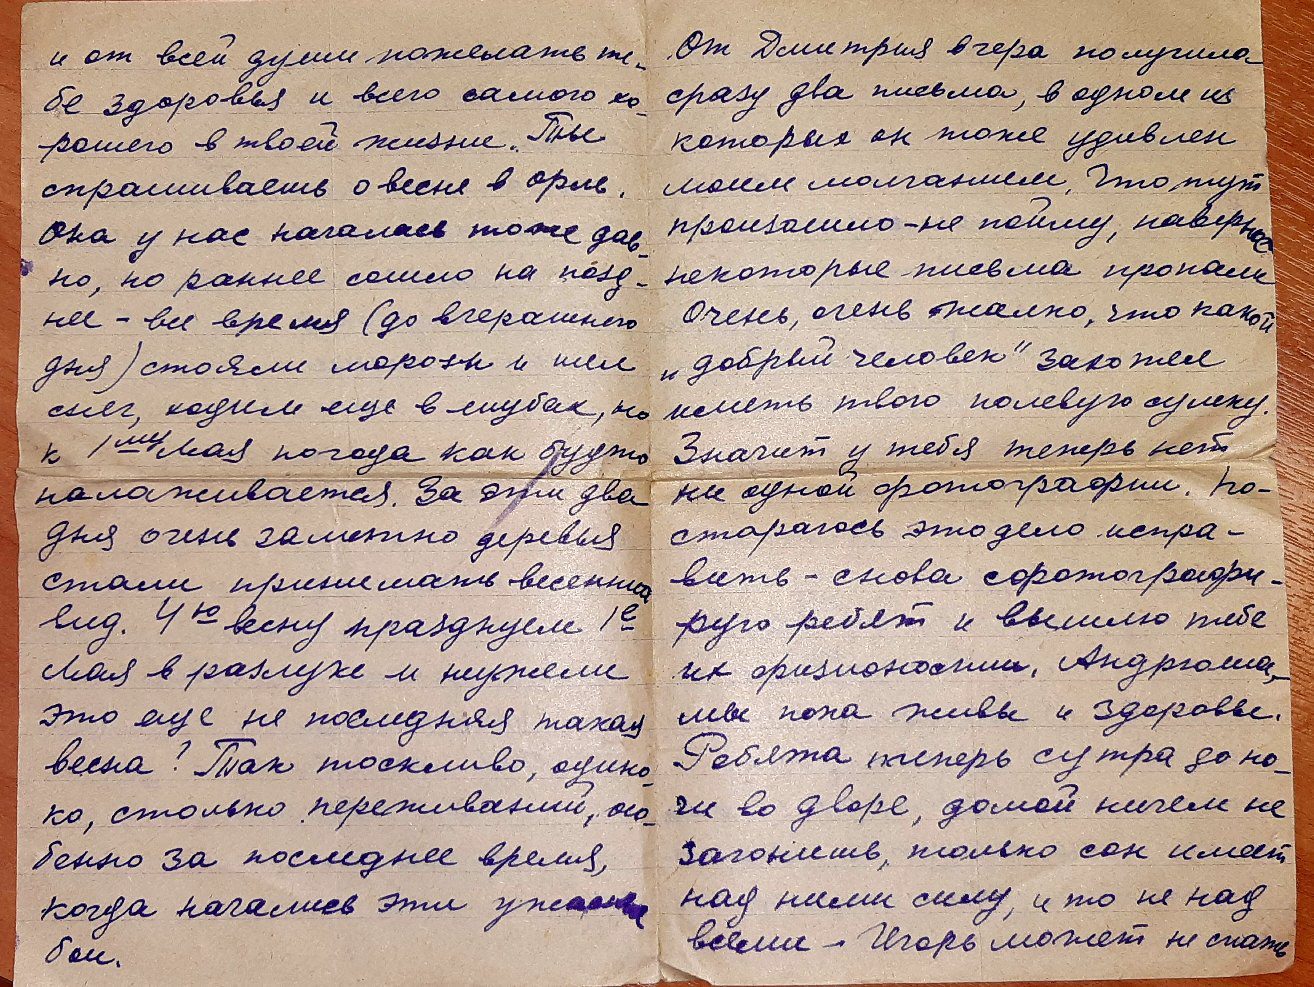 и от всей души пожелать те-
бе здоровья и всего самого хо-
рошего в твоей жизни. Ты
спрашиваешь о весне в Орле.
Она у нас началась тоже дав-
но, но раннее сошло на позд-
нее - все время (до вчерашнего
дня) стояли морозы и шел
снег, ходим еще в шубах, но
к 1му Мая погода как будто
налаживается. За эти два
дня очень заметно деревья
стали принимать весенний
вид. 4ю весну празднуем 1е
Мая в разлуке и нужели
это еще не последняя такая
весна? Так тоскливо, одино-
ко, столько переживаний, осо-
бенно за последнее время,
когда начались эти ужасные
бои.
От Дмитрия вчера получила
сразу два письма, в одном из
которых он тоже удивлен
моим молчанием. Что тут
произошло - не пойму, наверное
некоторые письма пропали
Очень, очень жалко, что какой
"добрый человек" захотел
иметь твою полевую сумку.
Значит у тебя теперь нет
ни одной фотографии. По-
стараюсь это дело испра-
вить - снова сфотографи-
рую ребят и вышлю тебе
их физиономии. Андрюша,
мы пока живы и здоровы.
Ребята теперь с утра до но-
чи во дворе, домой ничем не
загонишь, только сон имеет
над ними силу, и то не над
всеми - Игорь может не спать